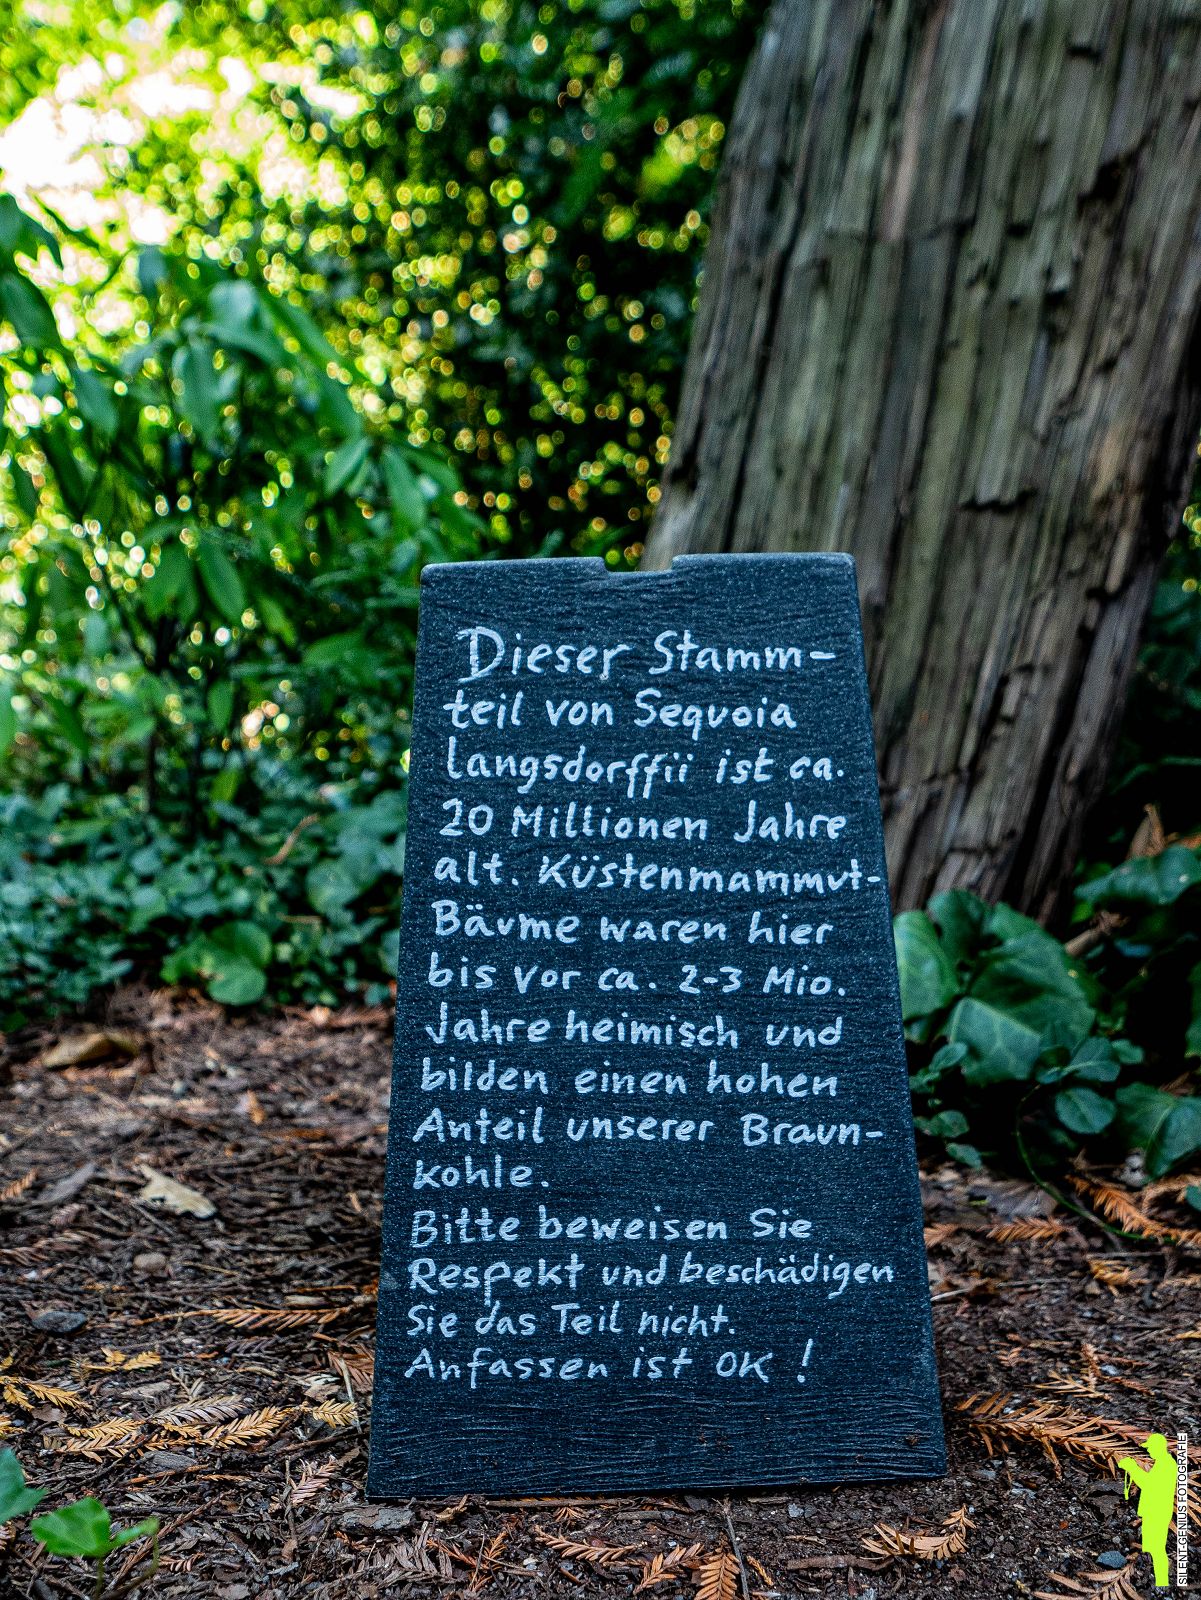 Dieser Stamm-
teil von Sequoia
langsdorffii ist ca.
20 Millionen Jahre
alt. Küstenmammut-
Bäume waren hier
bis vor ca. 2-3 Mio.
Jahre heimisch und
bilden einen hohen
Anteil unserer Braun-
kohle.
Bitte beweisen Sie
Respekt und beschädigen
Sie das Teil nicht.
Anfassen ist OK !
SILENT-GENIUS FOTOGRAFIE